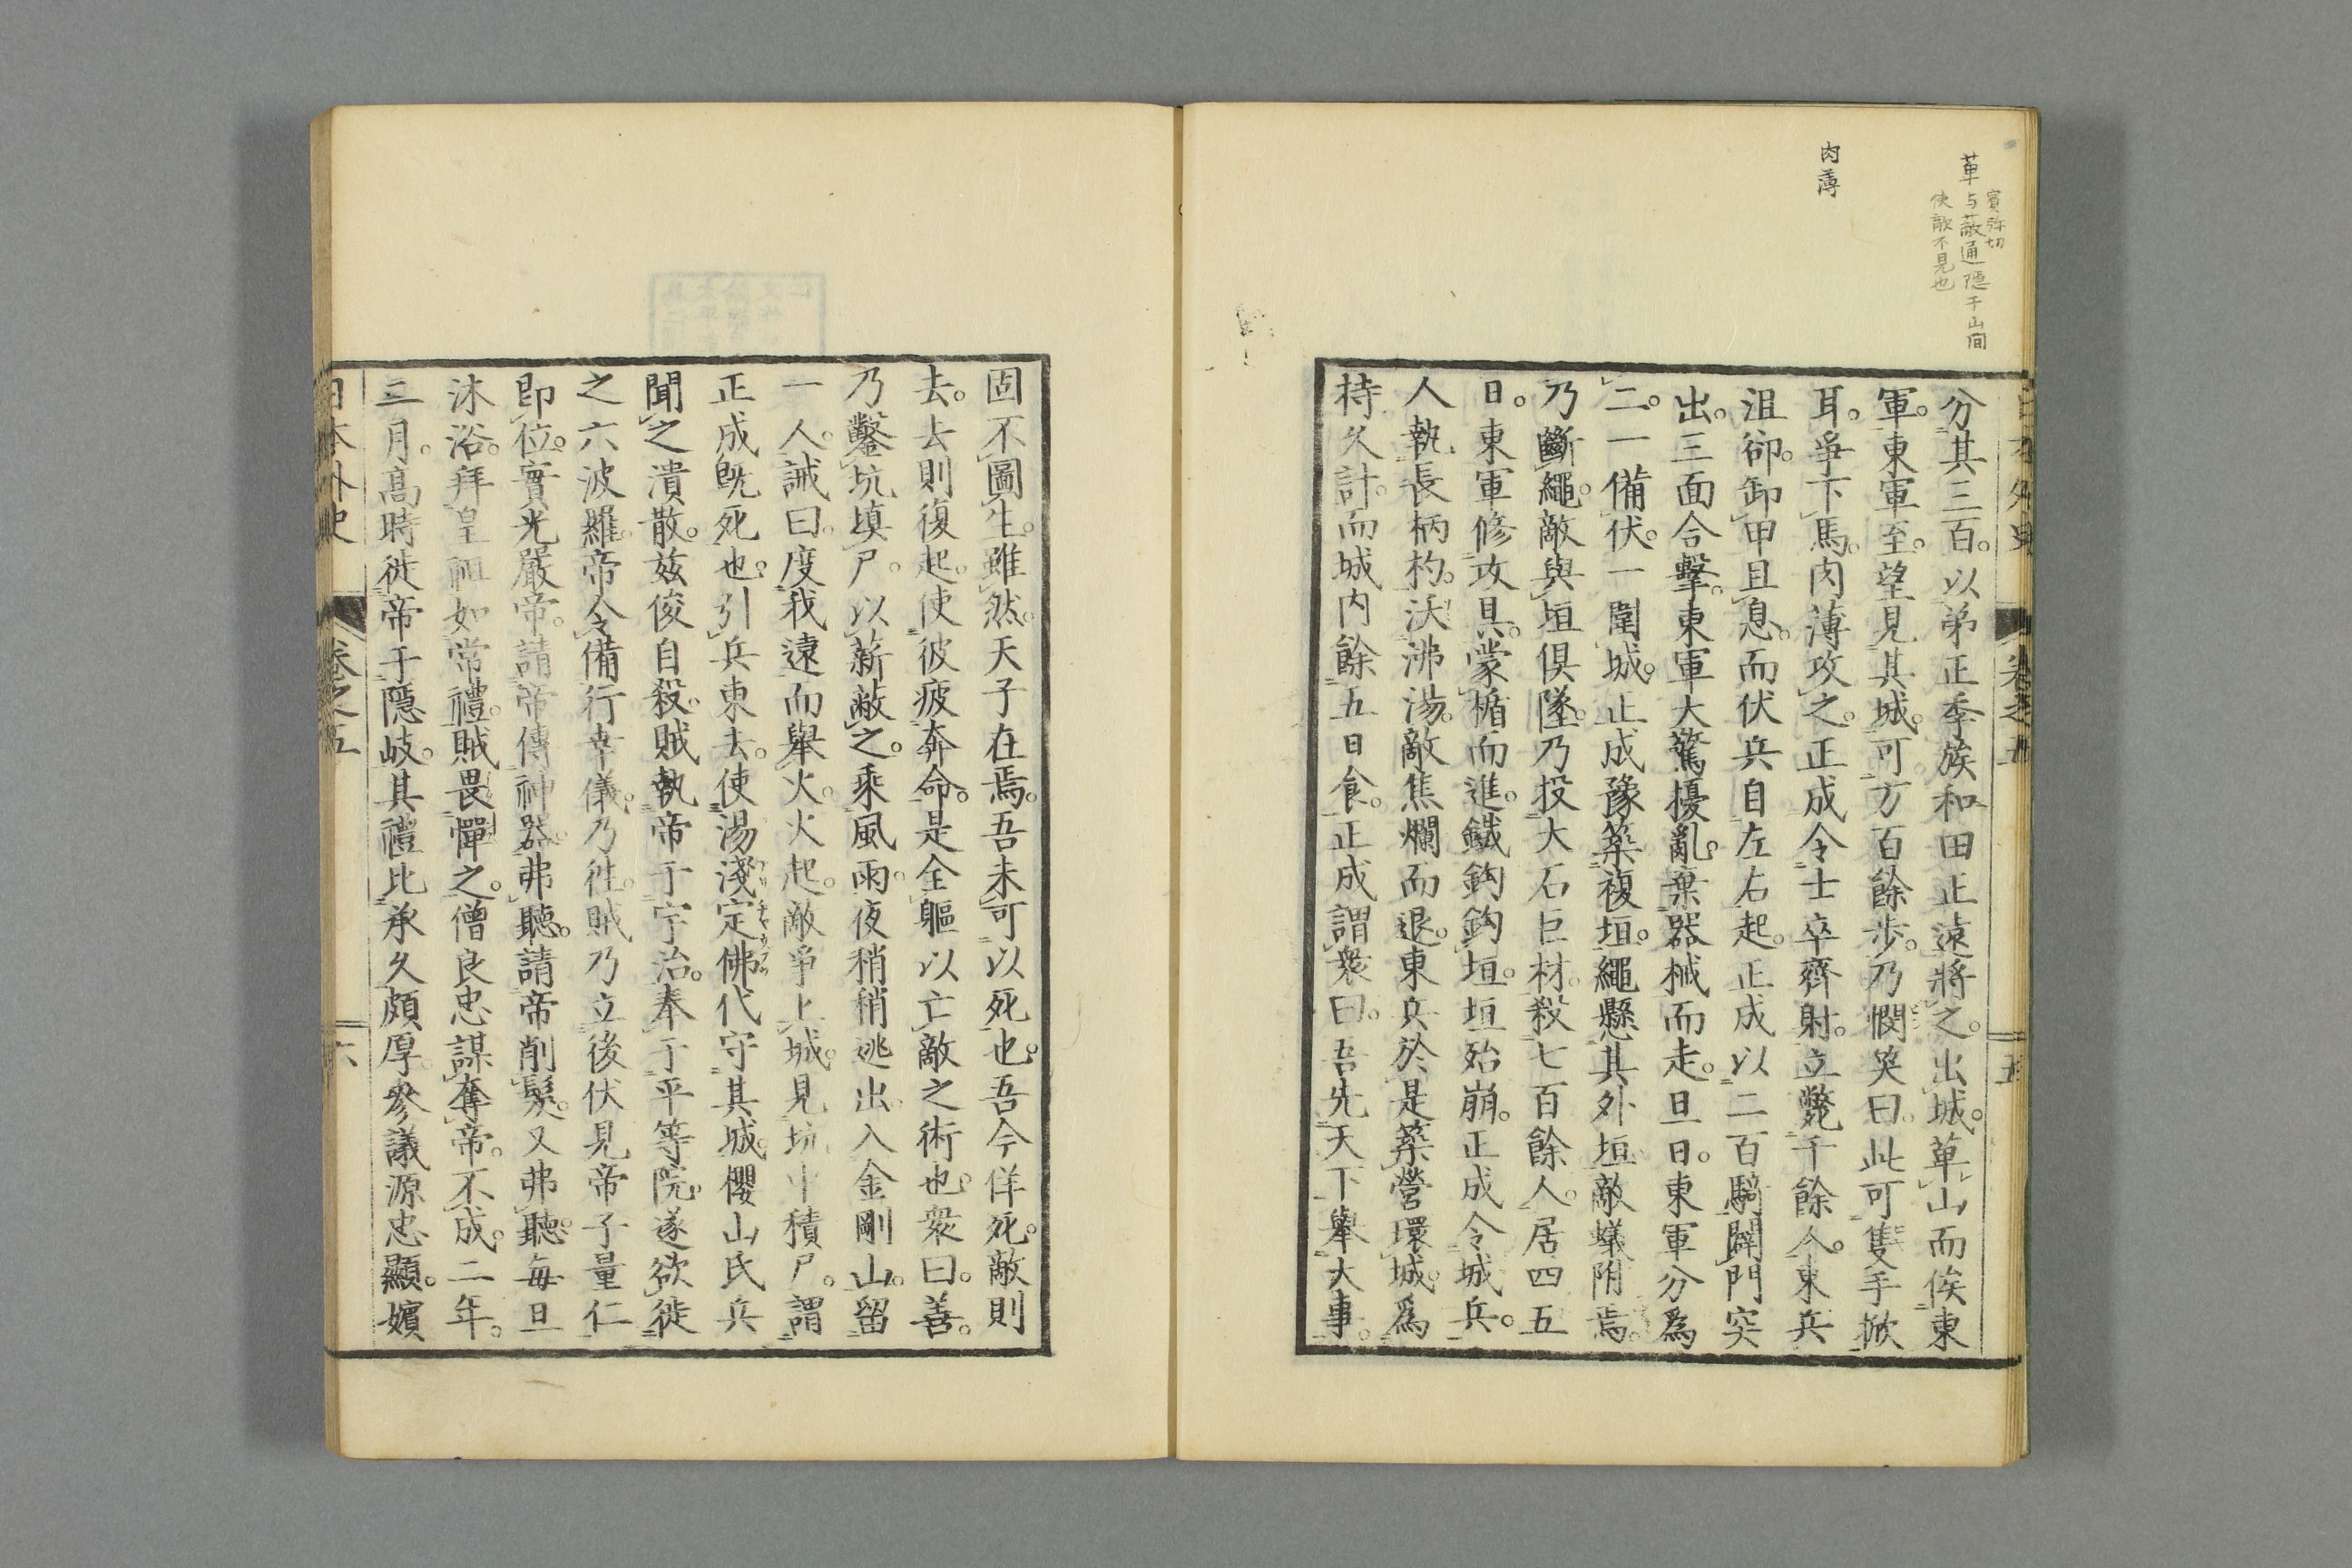 萆
賓弥切
与蔽通隱于山間
使敵不見也
肉薄
日本外史 卷之五 五
分其三百。以弟正季族和田正遠將之。出城。萆山而俟東
軍。東軍至。望見其城。可方百餘步。乃憫笑曰。此可隻手掀
耳。爭下馬。肉薄攻之。正成令士卒齊射。立斃千餘人。東兵
沮卻。卸甲且息。而伏兵自左右起。正成以二百騎闢門突
出。三面合擊。東軍大驚擾亂。棄器械而走。旦日。東軍分為
二。一備伏。一圍城。正成豫築複垣。繩懸其外垣。敵蟻附焉。
乃斷繩。敵與垣俱墜。乃投大石巨材。殺七百餘人。居四五
日。東軍修攻具。蒙楯而進。鐵鈎鈎垣。垣殆崩。正成令城兵。
人執長柄杓。沃沸湯。敵焦爛而退。東兵於是築營環城。爲
持久計。而城內餘五日食。正成謂衆曰。吾先天下舉大事。
固不圖生。雖然。天子在焉。吾未可以死也。吾今佯死。敵則
去。去則復起。使彼疲奔命。是全軀以亡敵之術也。衆曰。善。
乃鑿坑塡尸。以薪蔽之。乘風雨。夜稍稍逃出。入金剛山。留
一人。誡曰。度我遠而舉火。火起。敵爭上城。見坑中積尸。謂
正成旣死也。引兵東去。使湯淺定佛代守其城。櫻山氏兵
聞之潰散。茲俊自殺。賊執帝于宇治。奉于平等院。遂欲徙
之六波羅。帝令備行幸儀。乃徃。賊乃立後伏見帝子量仁
即位。實光嚴帝。請帝傳神器。弗聽。請帝削髮。又弗聽。每旦
沐浴。拜皇祖如常禮。賊畏憚之。僧良忠謀奪帝。不成。二年。
三月。高時徙帝于隱岐。其禮比承久頗厚。參議源忠顯。嬪
日本外史 卷之五 六